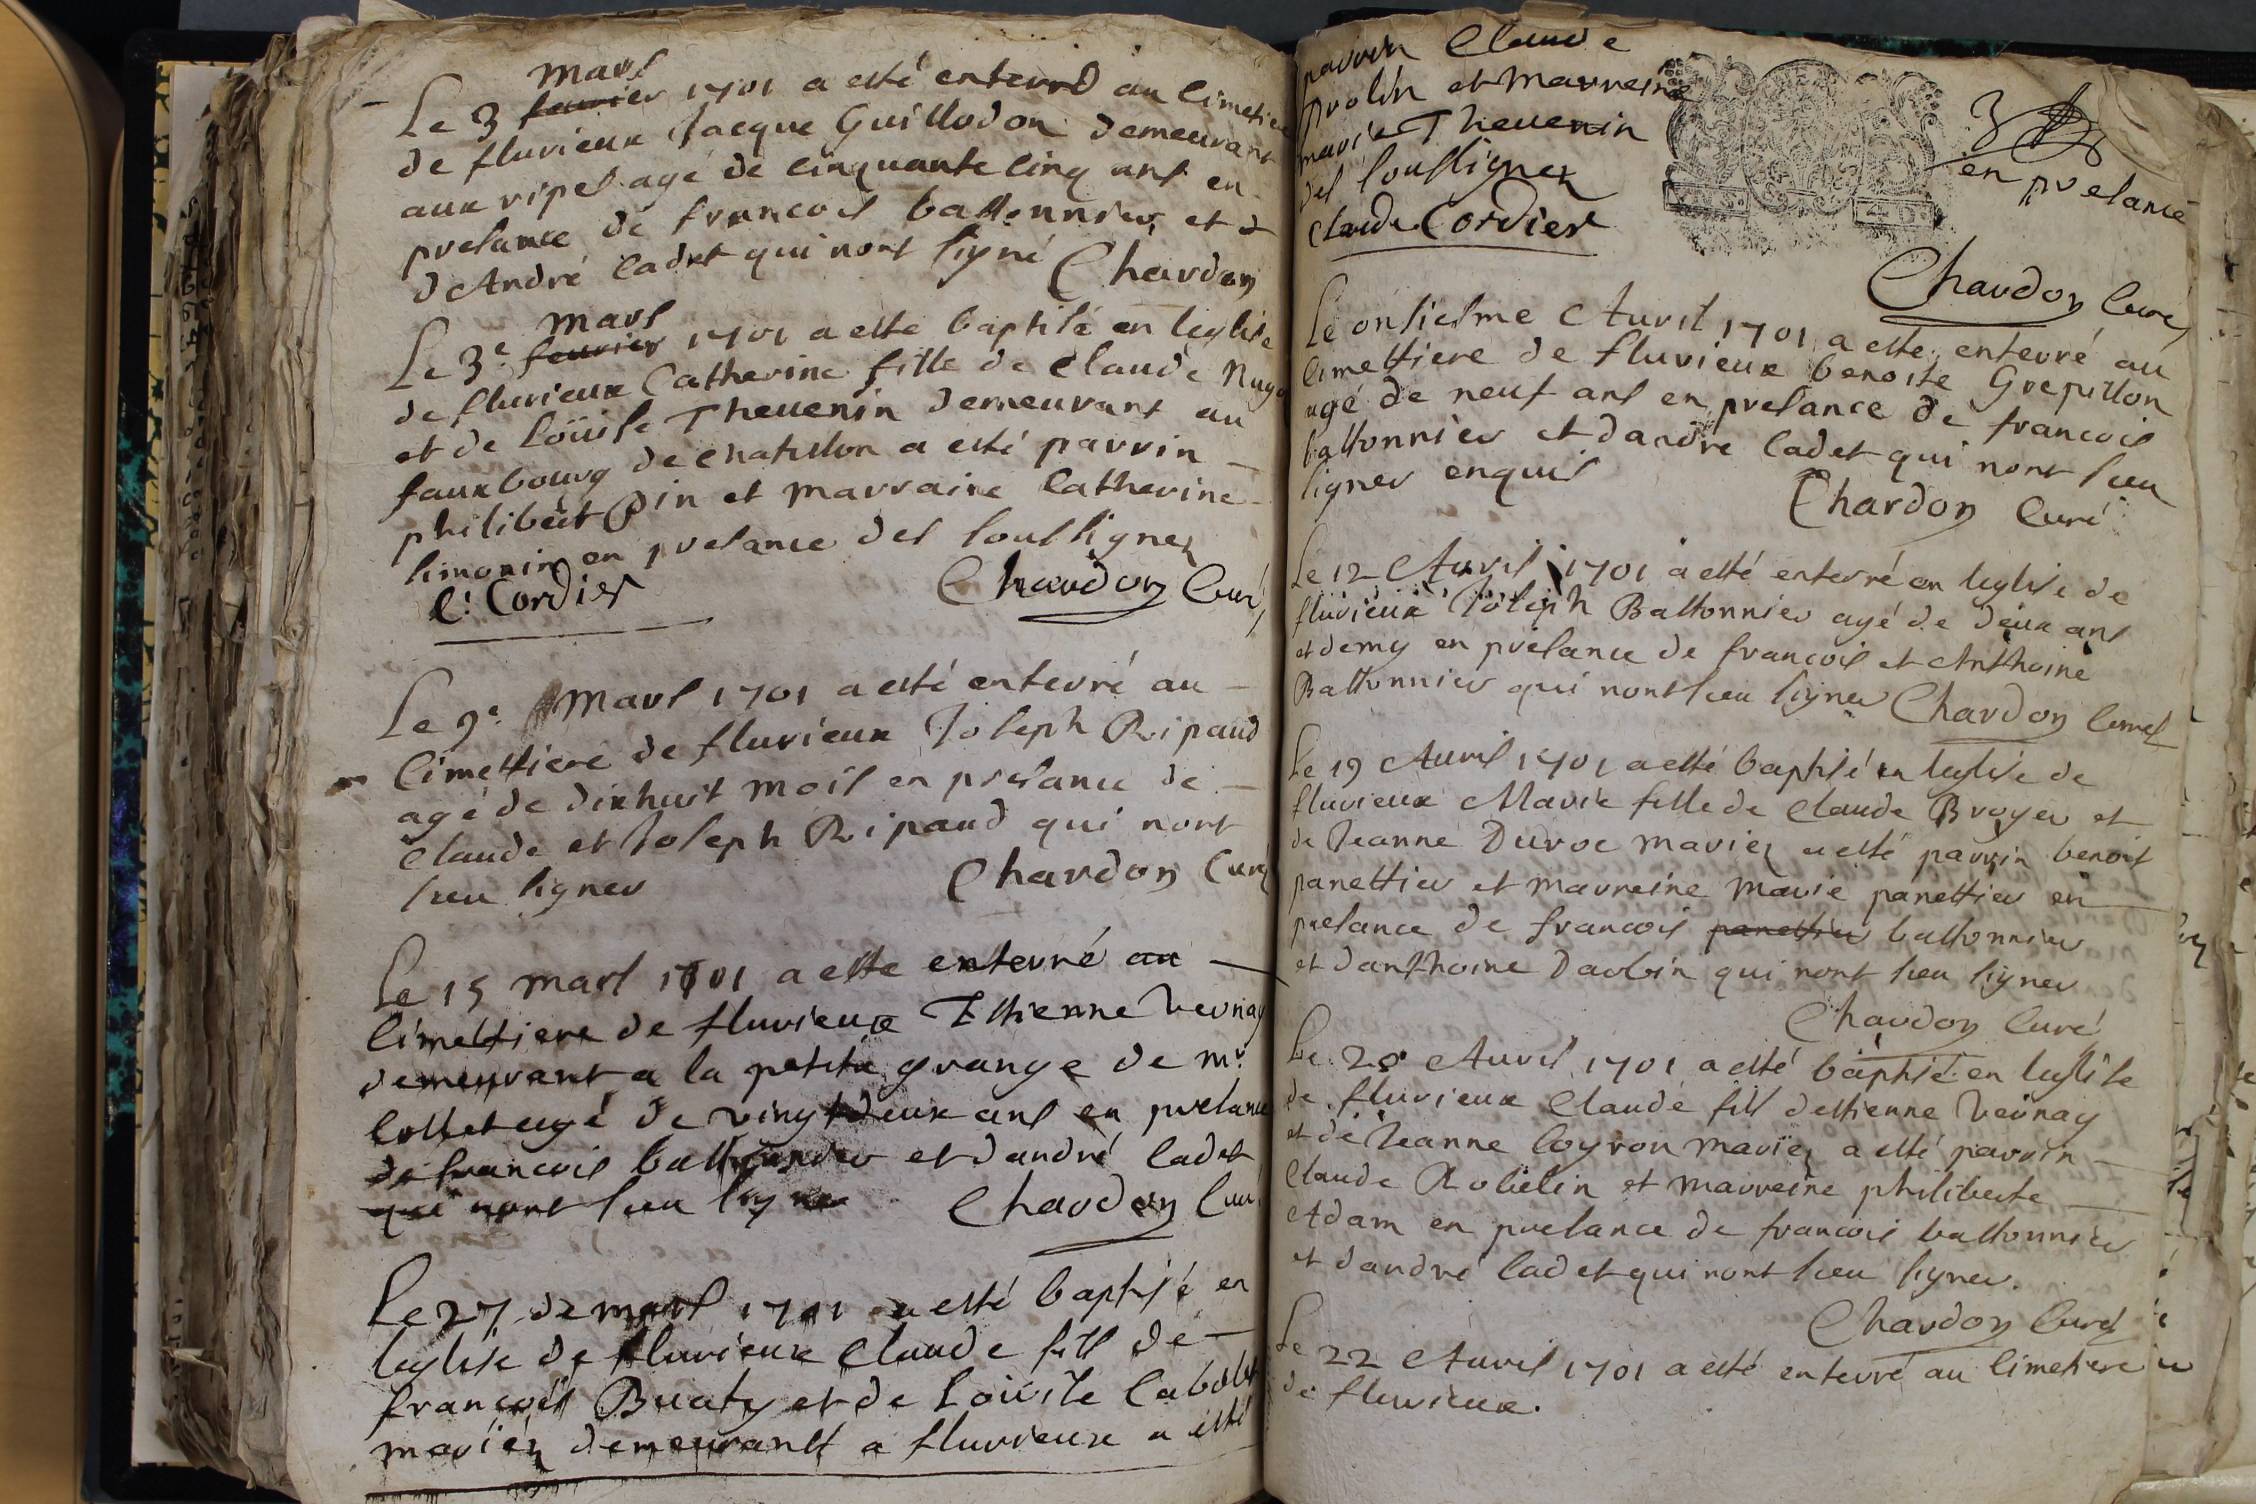 mars
Le 3 feurier 1701 a esté enterré au Cimetiere
de fluvieux Jacque Guillodon demeurant
aux ripes agé de cinquante cinq ans en
presance de francois bastonnier et d
d'André Cadet qui nont signé Chardon
mars
Le 3e feurier 1701 a esté baptisé en leglise
de fluvieux Catherine fille de Claude
et de Loüise Theuenin demeurant au
fauxbourg de chatillon a esté parrin
philibert Pin et marraine Catherine
simonin en presance des soussignez
C: Cordier Chardon Curé
Le 9e Mars 1701 a esté enterré au
Cimettiere de fluvieux Joseph Ripaud
agé de dixhuit mois en presance de
Claude et Joseph Ripaud qui nont
sceu signer Chardon Curé
Le 15 mars 1701 a esté enterré au
Cimettiere de fluvieux Estienne Vernay
demeurant a la petite grange de mr.
Collet agé de vingtdeux ans en presance
de francois bastonnier et dandré Cadet
qui nont sceu signer Chardon Curé
Le 27 de mars 1701 a esté baptisé en
leglise de fluvieux Claude fils de
françois Buaty et de Loüise
mariéz demeurants a fluvieux a esté
parrin Claude
prolin et marreine
marie Theuenin
des soussignez
Claude Cordier
en presance
Chardon Curé
Le onsiesme Auril 1701 a esté enterré au
Cimettiere de fluvieux benoite Grepillon
agé de neuf ans en presance de francois
bastonnier et dandre Cadet qui nont sceu
signer enquis
Chardon Curé
Le 12 Auril 1701 a esté enterré en leglise de
fluvieux Joseph Bastonnier agé de deux ans
et demy en présance de francois et Anthoine
Bastonnier qui nont sceu signer Chardon
Le 19 Auril 1701 a esté baptisé en leglise de
fluvieux Marie fille de Claude Broyer et
de Jeanne Duroc mariez a esté parrin benoit
panettier et marreine marie panettier en
presance de francois panettier bastonnier
et danthoine Daubin qui nont sceu signer
Chardon Curé
Le 20 Auril 1701 a esté baptisé en leglise
de fluvieux Claude fils destienne Vernay
et de Jeanne Coyron mariez a esté parrin
Claude Robelin et marreine philiberte
Adam en presance de francois bastonnier
et dandré Cadet qui nont sceu signer.
Chardon Curé
Le 22 Auril 1701 a esté enterré au Cimetiere
de fluvieux.